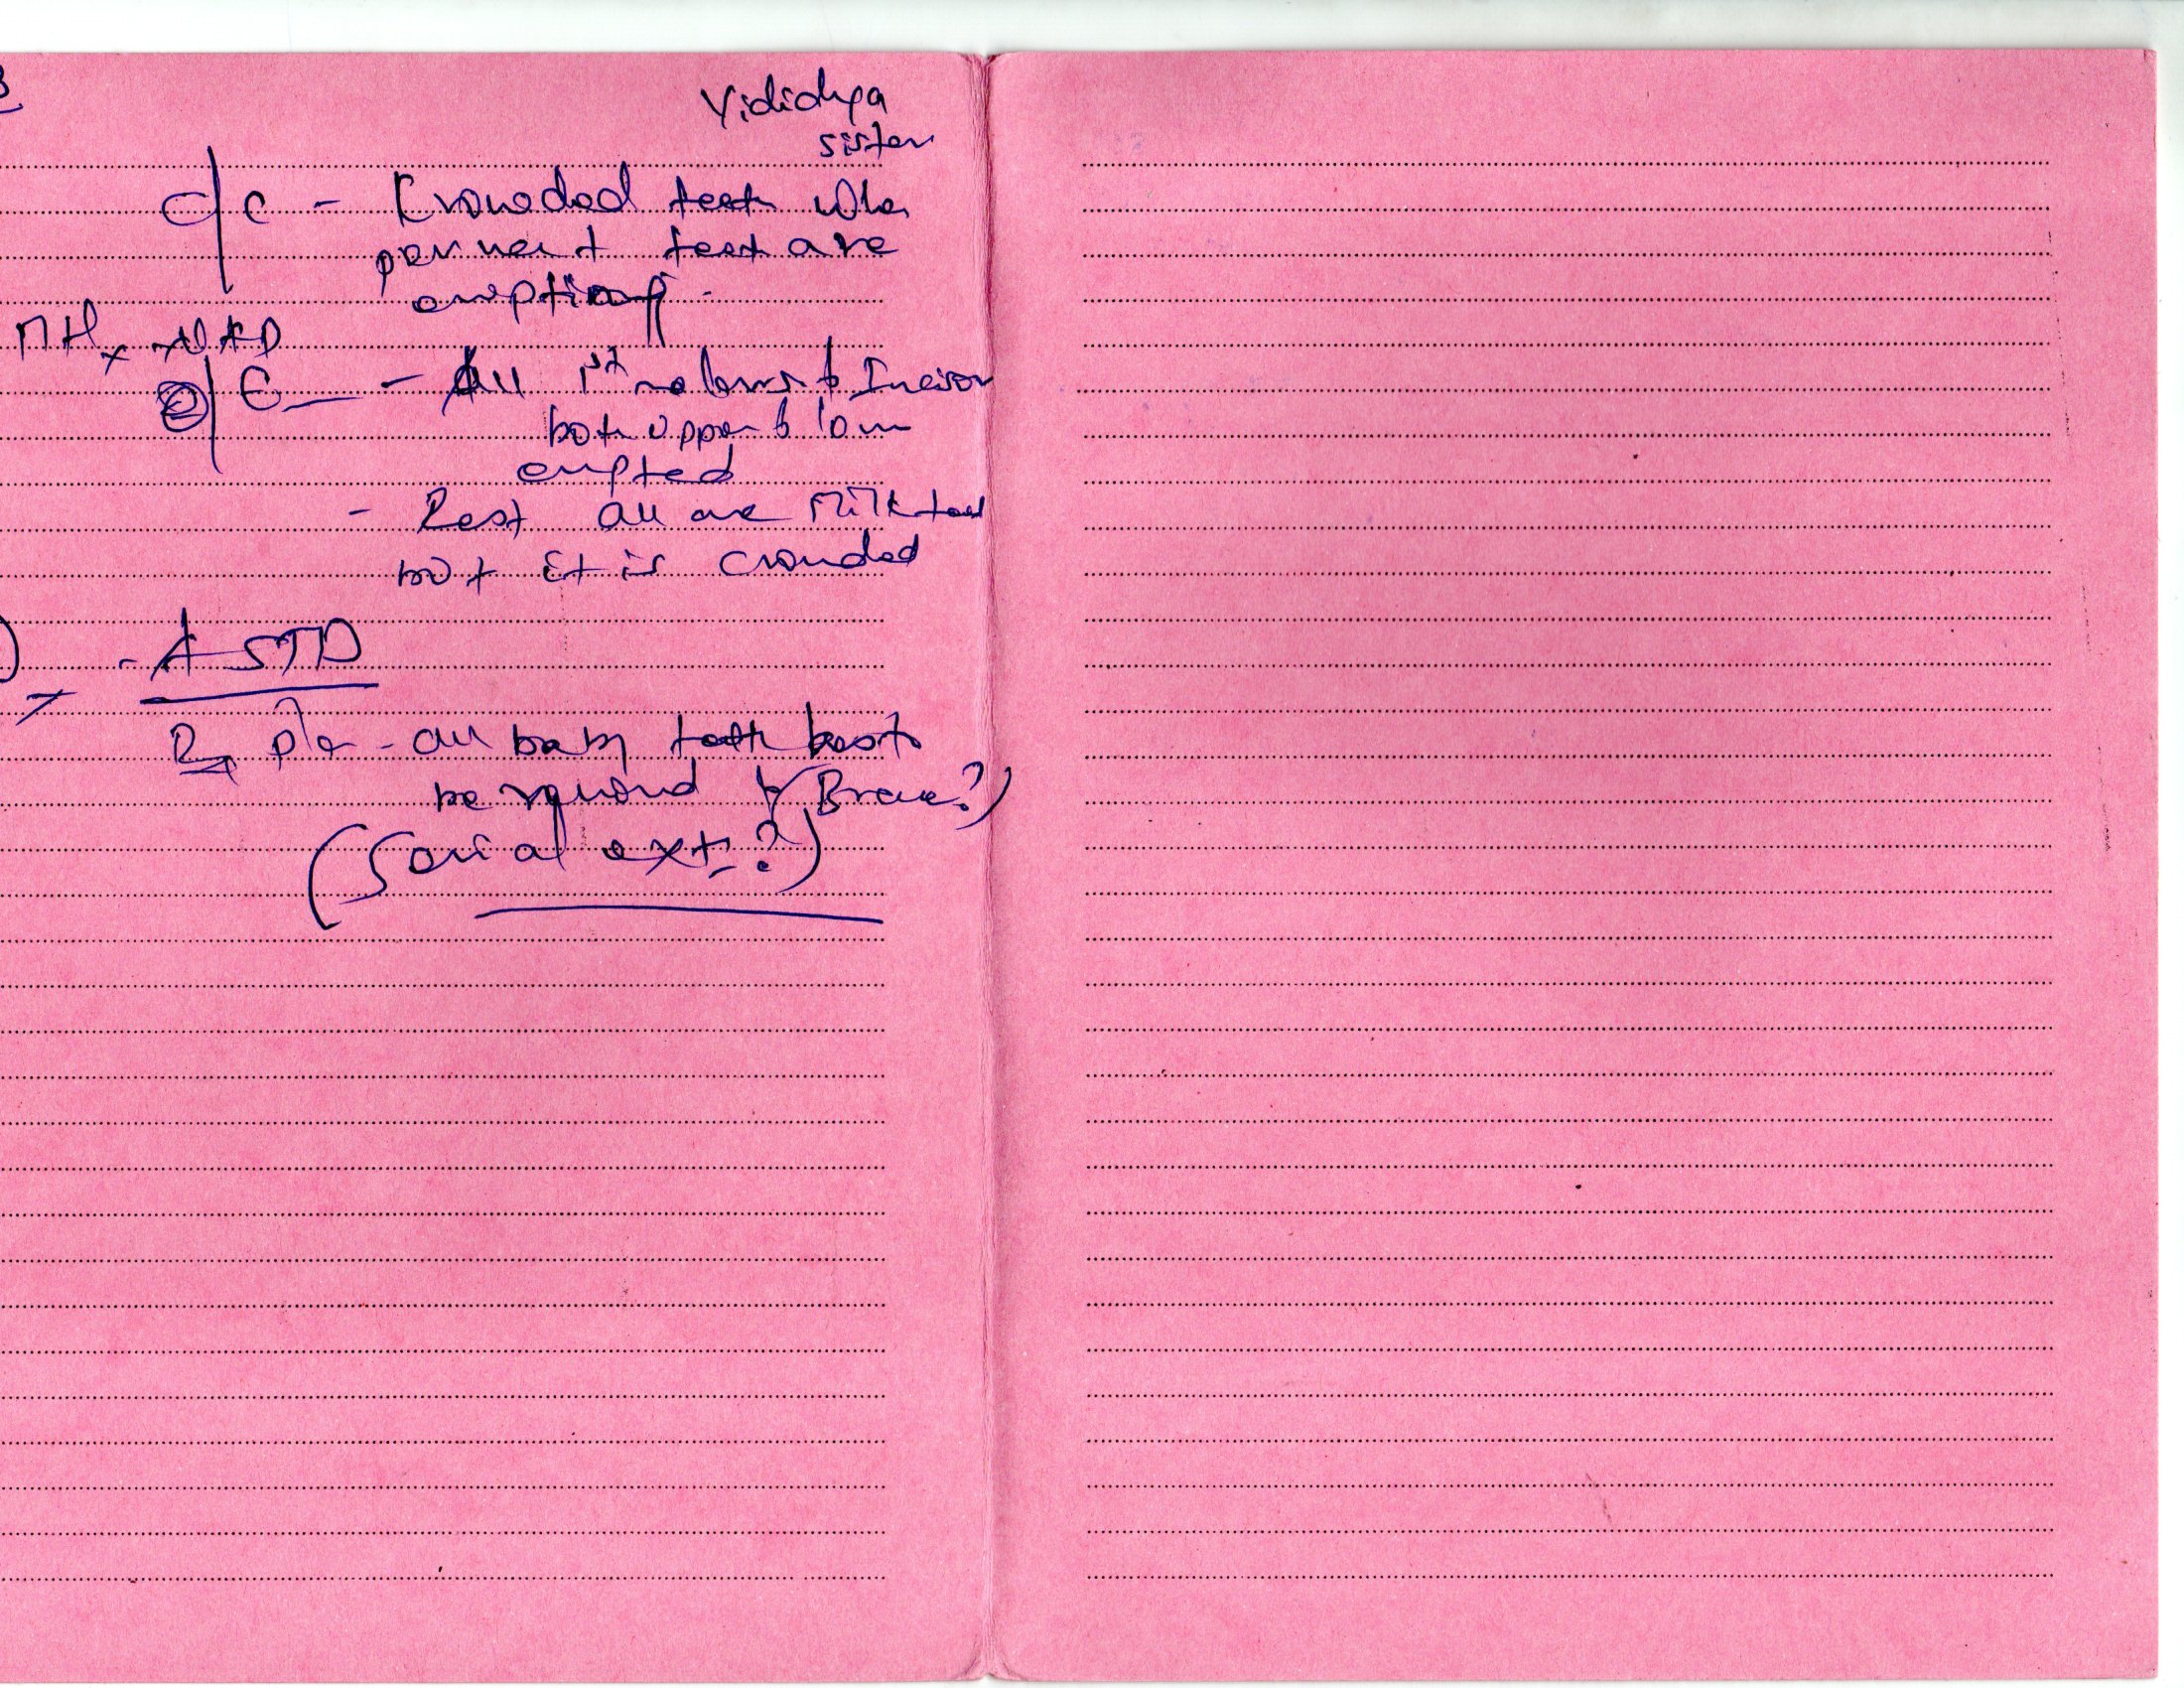 Yididya
sister
C/C - Crowded teeth when
permnent teeth are
eruptiong.
MHx NAD
O/E - All 1st molars & Incisor
both upper & low
erupted
- Rest all are Milk teeth
but it is crowded
- ASTD
Rx pla - all baby teeth has to
be removed & (Brace?)
(Serial ext.?)